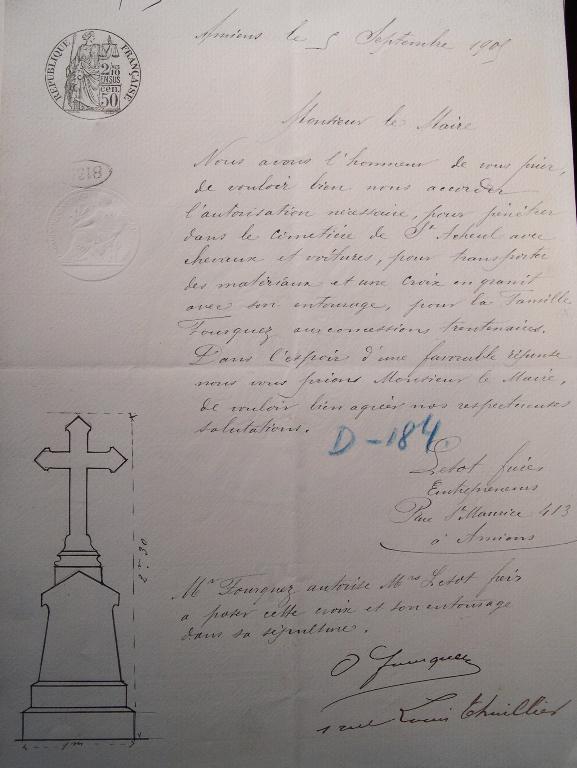 Amiens le 5 Septembre 1905
RÉPUBLIQUE FRANÇAISE
2/10
EN SUS
cen.
50
Monsieur le Maire
Nous avons l'honneur de vous prier,
de vouloir bien nous accorder
l'autorisation nécessaire, pour pénétrer
dans le cimetière de St Acheul avec
chevaux et voitures, pour transporter
des matériaux et une croix en granit
avec son entourage, pour la Famille
Fourquez aux concessions trentenaires.
Dans l'espoir d'une favorable réponse
nous vous prions Monsieur le Maire,
de vouloir bien agréer nos respectueuses
salutations.
D-184
Letot frères
Entrepreneurs
Rue St Maurice 413
à Amiens
2m30
Mr Fourquez autorise Mrs Letot frères
a poser cette croix et son entourage
dans sa sépulture.
Fourquez
rue Louis Thuillier
1m